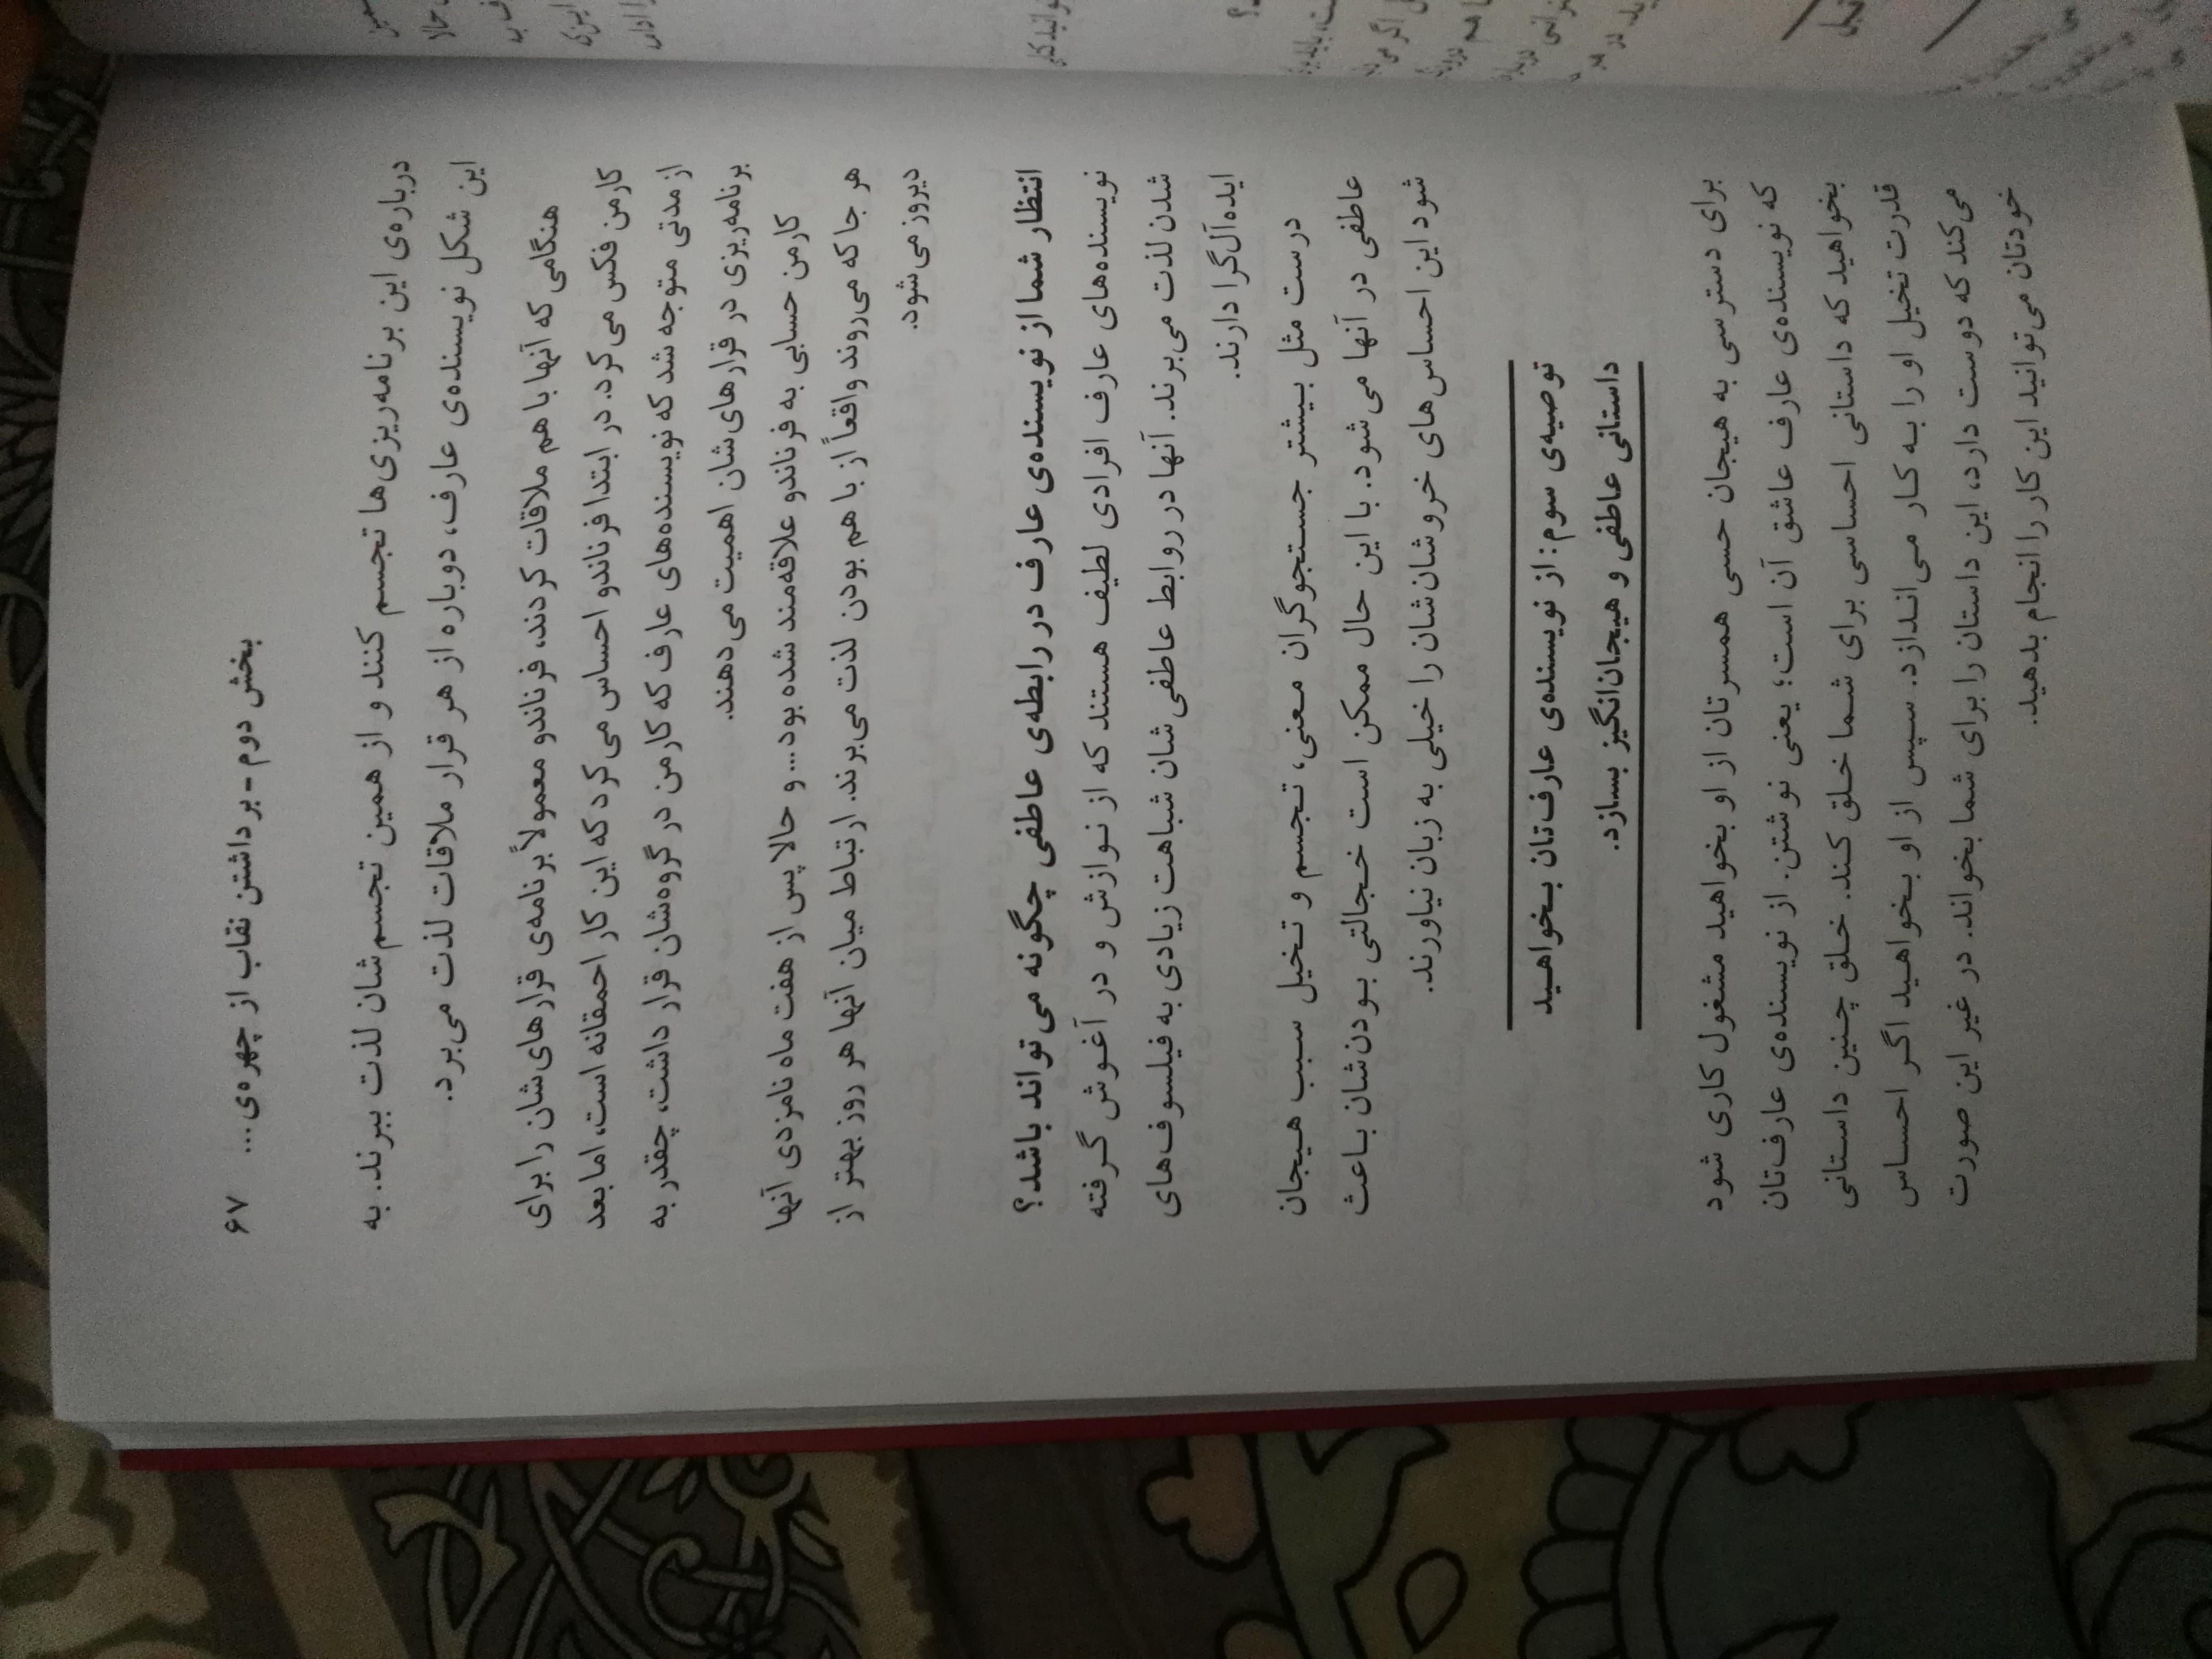 بخش دوم - برداشتن نقاب از چهره‌ی... ۶۷
درباره‌ی این برنامه‌ریزی‌ها تجسم کنند و از همین تجسم‌شان لذت ببرند. به
این شکل نویسنده‌ی عارف، دوباره از هر قرار ملاقات لذت می‌برد.
هنگامی که آنها با هم ملاقات کردند، فرناندو معمولاً برنامه‌ی قرارهای‌شان را برای
کارمن فکس می‌کرد. در ابتدا فرناندو احساس می‌کرد که این کار احمقانه است، اما بعد
از مدتی متوجه شد که نویسنده‌های عارف که کارمن در گروه‌شان قرار داشت، چقدر به
برنامه‌ریزی در قرارهای‌شان اهمیت می‌دهند.
کارمن حسابی به فرناندو علاقه‌مند شده بود... و حالا پس از هفت ماه نامزدی آنها
هر جا که می‌روند واقعاً از با هم بودن لذت می‌برند. ارتباط میان آنها هر روز بهتر از
دیروز می‌شود.
انتظار شما از نویسنده‌ی عارف در رابطه‌ی عاطفی چگونه می‌تواند باشد؟
نویسنده‌های عارف افرادی لطیف هستند که از نوازش و در آغوش گرفته
شدن لذت می‌برند. آنها در روابط عاطفی‌شان شباهت زیادی به فیلسوف‌های
ایده‌آل‌گرا دارند.
درست مثل بیشتر جستجوگران معنی، تجسم و تخیل سبب هیجان
عاطفی در آنها می‌شود. با این حال ممکن است خجالتی بودن‌شان باعث
شود این احساس‌های خروشان‌شان را خیلی به زبان نیاورند.
توصیه‌ی سوم: از نویسنده‌ی عارف‌تان بخواهید
داستانی عاطفی و هیجان‌انگیز بسازد.
برای دسترسی به هیجان حسی همسرتان از او بخواهید مشغول کاری شود
که نویسنده‌ی عارف عاشق آن است؛ یعنی نوشتن. از نویسنده‌ی عارف‌تان
بخواهید که داستانی احساسی برای شما خلق کند. خلق چنین داستانی
قدرت تخیل او را به کار می‌اندازد. سپس از او بخواهید اگر احساس
می‌کند که دوست دارد، این داستان را برای شما بخواند. در غیر این صورت
خودتان می‌توانید این کار را انجام بدهید.